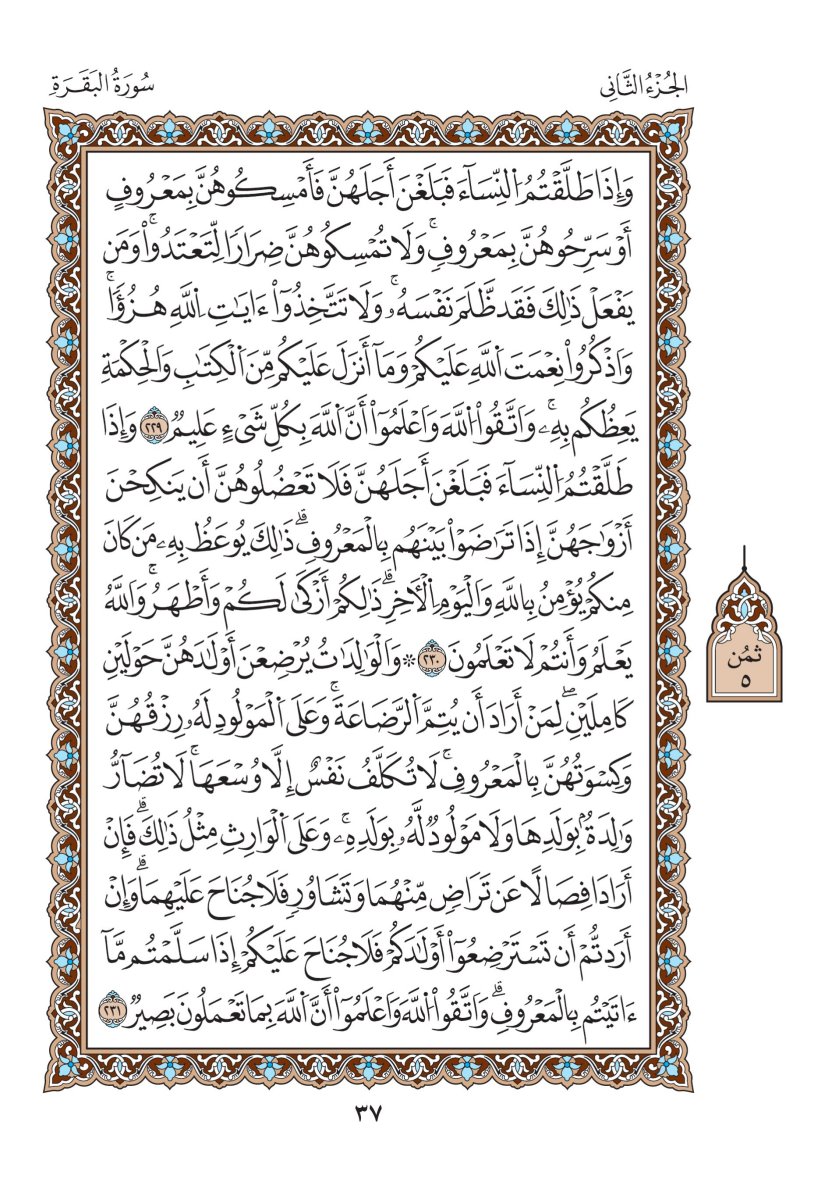 الجُزْءُ الثَّانِي
سُورَةُ البَقَرَةِ
وَإِذَا طَلَّقْتُمُ اُ۬لنِّسَآءَ فَبَلَغْنَ أَجَلَهُنَّ فَأَمْسِكُوهُنَّ بِمَعْرُوفٍ
أَوْ سَرِّحُوهُنَّ بِمَعْرُوفٖۚ وَلَا تُمْسِكُوهُنَّ ضِرَارٗا لِّتَعْتَدُواْۚ وَمَن
يَفْعَلْ ذَٰلِكَ فَقَد ظَّلَمَ نَفْسَهُۥۚ وَلَا تَتَّخِذُوٓاْ ءَايَٰتِ اِ۬للَّهِ هُزُؤٗاۚ
وَاذْكُرُواْ نِعْمَتَ اَ۬للَّهِ عَلَيْكُمْ وَمَآ أَنزَلَ عَلَيْكُم مِّنَ اَ۬لْكِتَٰبِ وَالْحِكْمَةِ
يَعِظُكُم بِهِۦۚ وَاتَّقُواْ اُ۬للَّهَ وَاعْلَمُوٓاْ أَنَّ اَ۬للَّهَ بِكُلِّ شَيْءٍ عَلِيمٞ ٢٢٩ وَإِذَا
طَلَّقْتُمُ اُ۬لنِّسَآءَ فَبَلَغْنَ أَجَلَهُنَّ فَلَا تَعْضُلُوهُنَّ أَن يَنكِحْنَ
أَزْوَٰجَهُنَّ إِذَا تَرَٰضَوْاْ بَيْنَهُم بِالْمَعْرُوفِۗ ذَٰلِكَ يُوعَظُ بِهِۦ مَن كَانَ
مِنكُمْ يُؤْمِنُ بِاللَّهِ وَالْيَوْمِ اِ۬لْأٓخِرِۗ ذَٰلِكُمْ أَزْكَىٰ لَكُمْ وَأَطْهَرُۚ وَاللَّهُ
يَعْلَمُ وَأَنتُمْ لَا تَعْلَمُونَ ٢٣٠ ۞وَالْوَٰلِدَٰتُ يُرْضِعْنَ أَوْلَٰدَهُنَّ حَوْلَيْنِ
ثمُن
٥
كَامِلَيْنِۖ لِمَنْ أَرَادَ أَن يُتِمَّ اَ۬لرَّضَاعَةَۚ وَعَلَى اَ۬لْمَوْلُودِ لَهُۥ رِزْقُهُنَّ
وَكِسْوَتُهُنَّ بِالْمَعْرُوفِۚ لَا تُكَلَّفُ نَفْسٌ إِلَّا وُسْعَهَاۚ لَا تُضَآرُّ
وَٰلِدَةُۢ بِوَلَدِهَا وَلَا مَوْلُودٞ لَّهُۥ بِوَلَدِهِۦۚ وَعَلَى اَ۬لْوَارِثِ مِثْلُ ذَٰلِكَۗ فَإِنْ
أَرَادَا فِصَالًا عَن تَرَاضٖ مِّنْهُمَا وَتَشَاوُرٖ فَلَا جُنَاحَ عَلَيْهِمَاۗ وَإِنْ
أَرَدتُّمْ أَن تَسْتَرْضِعُوٓاْ أَوْلَٰدَكُمْ فَلَا جُنَاحَ عَلَيْكُمْ إِذَا سَلَّمْتُم مَّآ
ءَاتَيْتُم بِالْمَعْرُوفِۗ وَاتَّقُواْ اُ۬للَّهَ وَاعْلَمُوٓاْ أَنَّ اَ۬للَّهَ بِمَا تَعْمَلُونَ بَصِيرٞ ٢٣١
٣٧